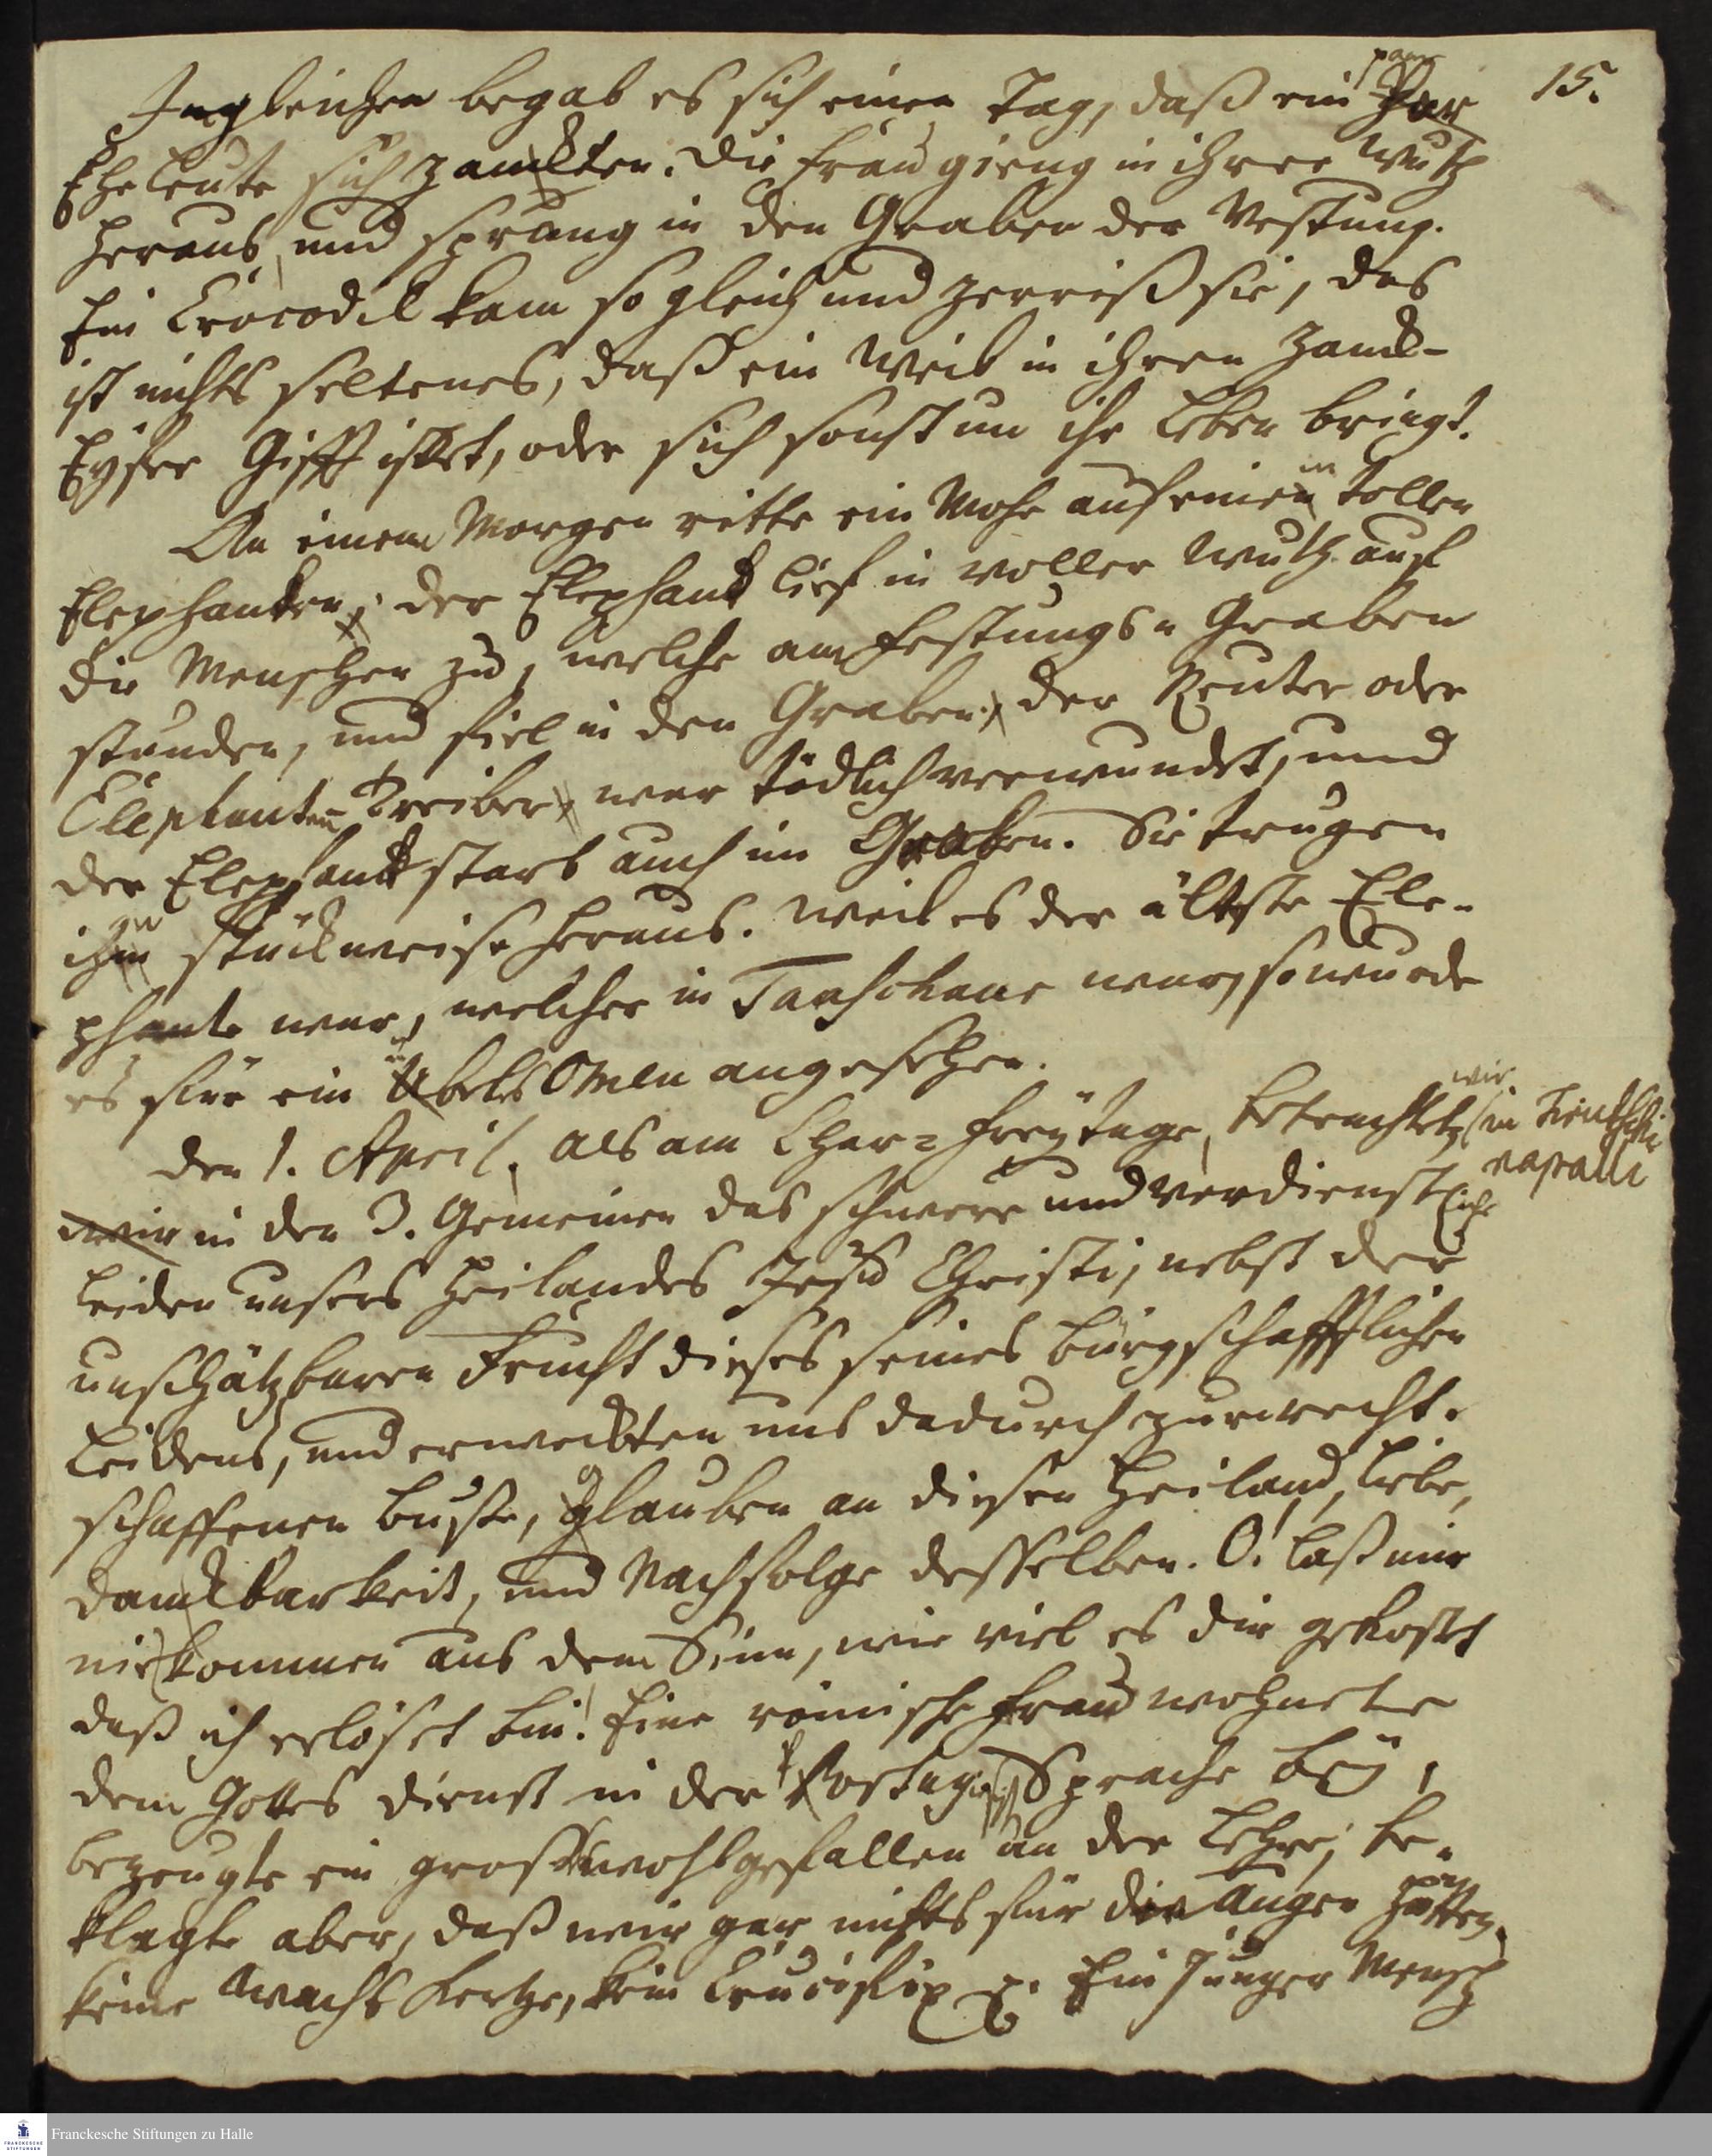 15.
Ingleichen begab es sich einen Tag, daß ein paar
Eheleute sich zanckten. Die Frau gieng in ihrer Wuth
heraus, und sprung in den Graben der Vestung.
Ein Crocodil kam so gleich und zerriß sie, das
ist nichts seltenes, daß ein Weib in ihrem Zanck-
Eyfer Gifft isset, oder sich sonst um ihr Leben bringt.
An einem Morgen ritte ein Mohr auf einem tollen
Elephanten, der Elephant lief in voller Wuth auf
die Menschen zu, welche am Festungs-Graben
stunden, und fiel in den Graben, der Reuter oder
Elephanten-Treiber, war tödlich verwundet, und
der Elephant starb auch im Graben. Sie trugen
ihn stückweise heraus. Weil es der älteste Ele-
phante war, welcher in Tanschaur war, so wurde
es für ein übeles Omen angesehen.
Den 1. April, als am Char-Freytage, betrachteten wir in Tirutschi-
napalli
wir in den 3. Gemeinen das schwere und verdienstliche
Leiden unsers Heilandes Jesu Christi, nebst der
unschätzbaren Frucht dieses seines bürgschafftlichen
Leidens, und erweckten uns dadurch zur recht-
schaffenen Buße, Glauben an diesen Heiland, Liebe,
Danckbarkeit, und Nachfolge desselben. O! laß mir
nie kommen aus dem Sinn, wie viel es dir gekostet
daß ich erlöset bin! Eine römische Frau wohnete
dem Gottes dienst in der Portugis. Sprache bey,
bezeugte ein großes wohlgefallen an der Lehre, be-
klagte aber, daß wir gar nichts für die Augen hätten,
keine Wachs Kertze, kein Crucifix . Ein junger Mensch
Franckesche Stiftungen zu Halle
FRANCKESCHE
STIFTUNGEN